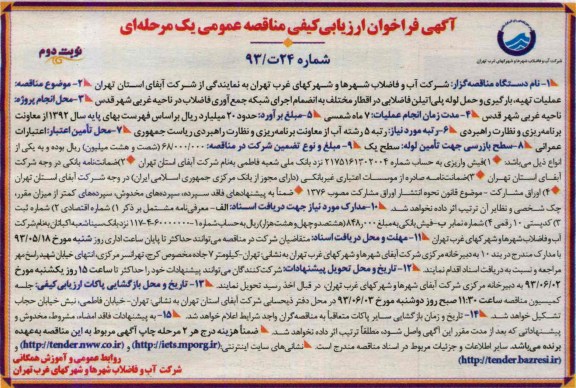 آگهی فراخوان ارزیابی‌کیفی مناقصه عمومی یک مرحله‌ای
نوبت دوم
شماره ۲۴ت/۹۳
شرکت آب و فاضلاب شهرها و شهرکهای غرب تهران
۱- نام دستگاه مناقصه‌گزار: شرکت آب و فاضلاب شهرها و شهرکهای غرب تهران به نمایندگی از شرکت آبفای استان تهران ۲- موضوع مناقصه:
عملیات تهیه، بارگیری و حمل لوله پلی‌اتیلن فاضلابی در اقطار مختلف به انضمام اجرای شبکه جمع‌آوری فاضلاب در ناحیه غربی شهر قدس ۳- محل انجام پروژه:
ناحیه غربی شهر قدس ۴- مدت زمان انجام عملیات: ۷ ماه شمسی ۵- مبلغ برآورد: حدود ۲۰ میلیارد ریال براساس فهرست بهای پایه سال ۱۳۹۲ از معاونت
برنامه‌ریزی و نظارت راهبردی ۶- رتبه مورد نیاز: رتبه ۵ رشته آب از معاونت برنامه‌ریزی و نظارت راهبردی ریاست جمهوری ۷- محل تأمین اعتبار: اعتبارات
عمرانی ۸- سطح بازرسی جهت تأمین لوله: سطح یک ۹- مبلغ و نوع تضمین شرکت در مناقصه: ۶۸/۰۰۰/۰۰۰ (شصت و هشت میلیون) ریال بوده و به یکی از
انواع ذیل می‌باشد: ۱)فیش واریزی به حساب شماره ۲۱۷۵۱۶۱۳۰۲۰۰۴ نزد بانک ملی شعبه فاطمی بنام شرکت آبفای استان تهران ۲)ضمانتنامه بانکی در وجه شرکت
آبفای استان تهران ۳)ضمانتنامه صادره از موسسات اعتباری غیربانکی (دارای مجوز از بانک مرکزی جمهوری اسلامی ایران) در وجه شرکت آبفای استان تهران
۴) اوراق مشارکت - موضوع قانون نحوه انتشار اوراق مشارکت مصوب ۱۳۷۶ ضمناً به پیشنهادهای فاقد سپرده، سپرده‌های مخدوش، سپرده‌های کمتر از میزان مقرر،
چک شخصی و نظایر آن ترتیب اثر داده نخواهد شد. ۱۰- مدارک مورد نیاز جهت دریافت اسناد: الف- معرفی‌نامه مشتمل بر ذکر ۱) شماره اقتصادی ۲) شماره ثبت
۳) کدپستی ۱۰ رقمی ۴) شماره نمابر ب- فیش بانکی به مبلغ ۸۴۸/۰۰۰ (هشتصد و چهل و هشت هزار) ریال به حساب شماره ۱-۶۰۰۰۰۰۰-۴-۱۱۷ نزد بانک سینا شعبه اکباتان بنام شرکت
آب و فاضلاب شهرها و شهرکهای غرب تهران ۱۱- مهلت و محل دریافت اسناد: متقاضیان شرکت در مناقصه می‌توانند حداکثر تا پایان ساعت اداری روز شنبه مورخ ۹۳/۰۵/۱۸
با مدارک مندرج در بند ۱۰ به دبیرخانه مرکزی شرکت آبفای شهرها و شهرکهای غرب تهران به نشانی تهران- کیلومتر ۷ جاده مخصوص کرج، تهرانسر مرکزی، انتهای خیابان شهید راسخ مهر
مراجعه و نسبت به دریافت اسناد اقدام نمایند. ۱۲- تاریخ و محل تحویل پیشنهادات: شرکت‌کنندگان می‌توانند پیشنهادات خود را حداکثر تا ساعت ۱۵ روز یکشنبه مورخ
۹۳/۰۶/۰۲ به دبیرخانه مرکزی شرکت آبفای شهرها و شهرکهای غرب تهران، در قبال اخذ رسید تحویل نمایند. ۱۳- تاریخ و محل بازگشایی پاکات ارزیابی کیفی: جلسه
کمیسیون مناقصه ساعت ۱۱:۳۰ صبح روز دوشنبه مورخ ۹۳/۰۶/۰۳ در محل دفتر ذیحسابی شرکت آبفای استان تهران به نشانی تهران- خیابان فاطمی، نبش خیابان حجاب
تشکیل خواهد شد. ۱۴- تاریخ و زمان بازگشایی سایر پاکات متعاقباً به مناقصه‌گران واجد شرایط اعلام خواهد شد. ۱۵- به پیشنهادات فاقد امضاء، مشروط، مخدوش و
پیشنهاداتی که بعد از مدت مقرر این آگهی واصل شود، مطلقاً ترتیب اثر داده نخواهد شد. ضمناً هزینه درج هر ۲ مرحله چاپ آگهی مربوط به این مناقصه به عهده
برنده می‌باشد. سایر اطلاعات و جزئیات مربوط در اسناد مناقصه مندرج است. نشانی‌های سایت اینترنتی (http://iets.mporg.ir) و (http://tender.nww.co.ir) و
(http://tender.bazresi.ir)
روابط عمومی و آموزش همگانی
شرکت آب و فاضلاب شهرها و شهرکهای غرب تهران